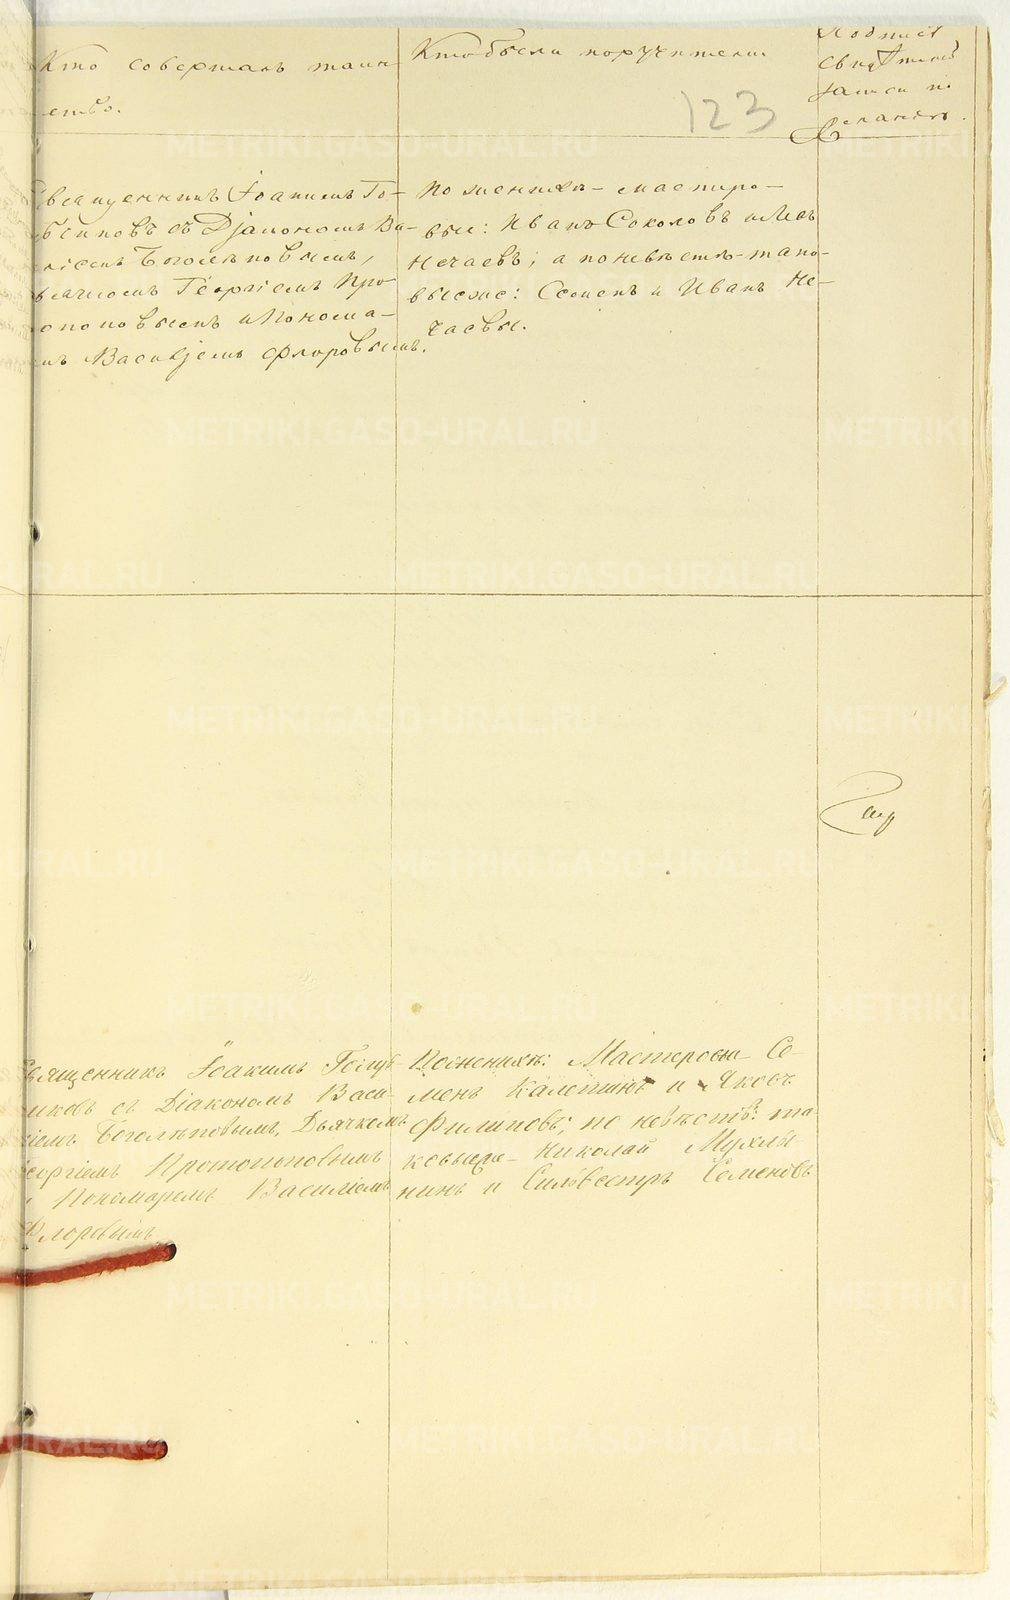 Кто совершалъ таин
ство.
Кто были поручители
Подпись
свидѣтелей
записи по
желанію.
123
Священникъ Іоакимъ Го-
съ Діакономъ Ва-
Боголѣповымъ,
Георгіемъ Про
топоповымъ и Понома-
Василіемъ Флоровымъ.
По женихѣ - мастеро-
вые: Иванъ Соколовъ и
Нечаевъ; а по невѣстѣ - тако-
выеже: Семенъ и Иванъ Не-
чаевы.
Священникъ Іоакимъ Голуб
иковъ съ Діакономъ Васи-
ліемъ Боголѣповымъ, Дьячкомъ
Георгіемъ Протопоповымъ
и Пономаремъ Василіемъ
Флоровымъ
По женихѣ: Мастеровые Се-
менъ Калегинъ и Яковъ
Филиповъ; по невѣстѣ: та-
ковыеже - Николай Мухлы
нинъ и Силвестръ Семеновъ
METRIKI.GASO-URAL.RU